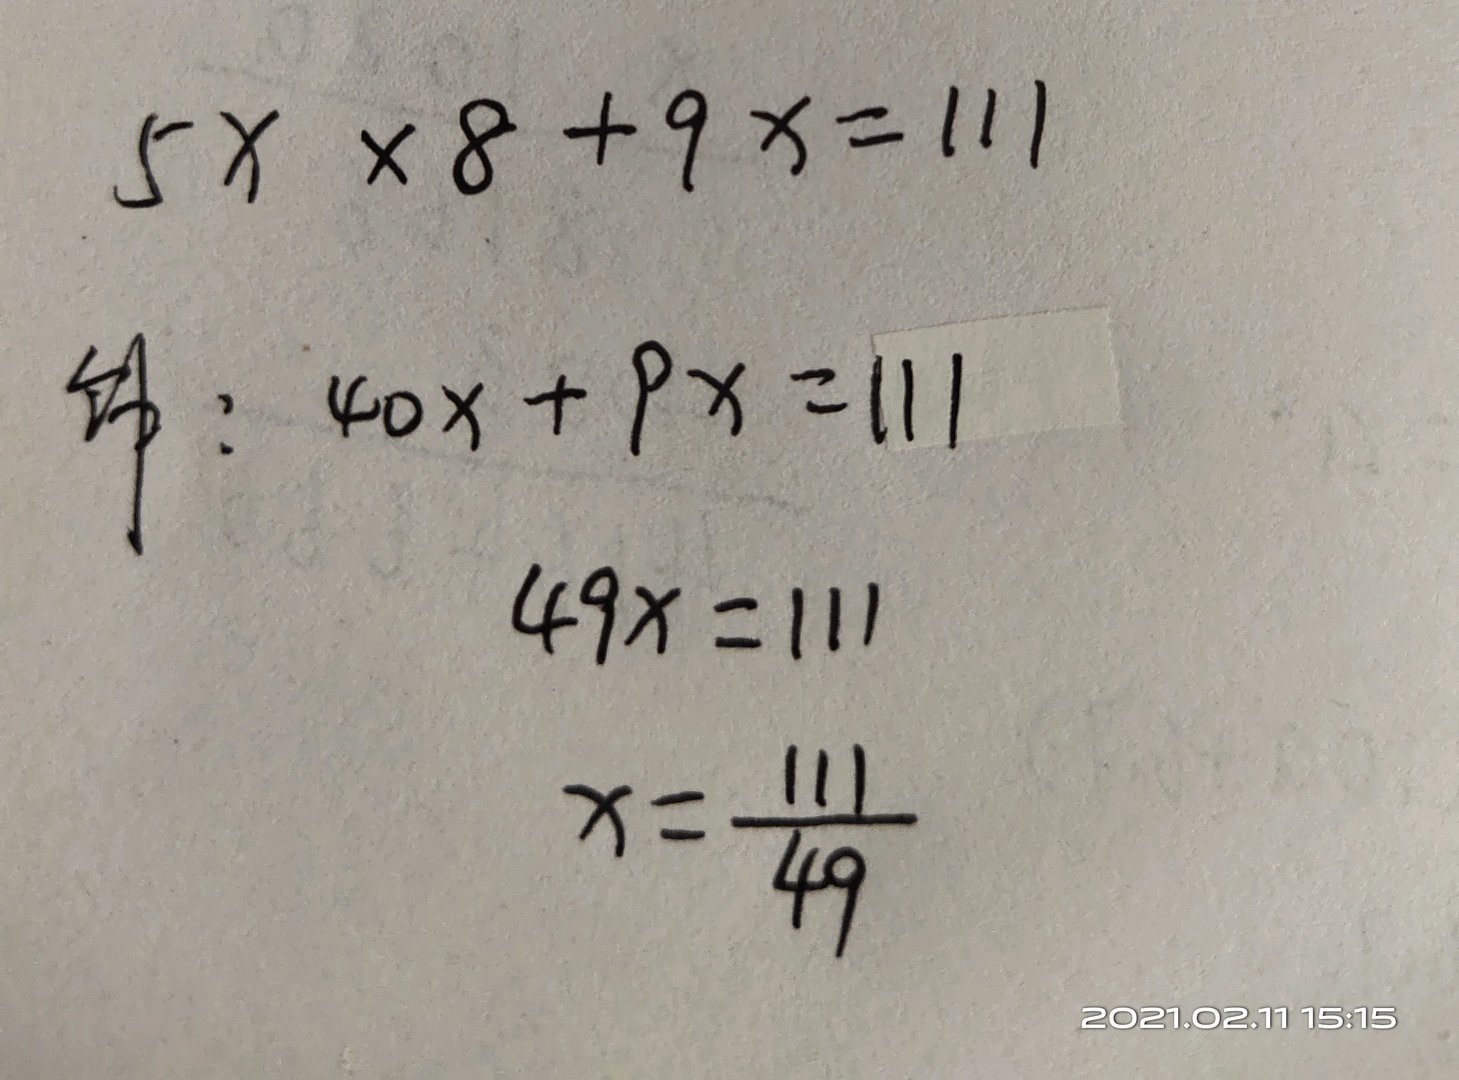 5x ×8+9x=111
解: 40x+9x=111
49x=111
x=111/49
2021.02.11 15:15